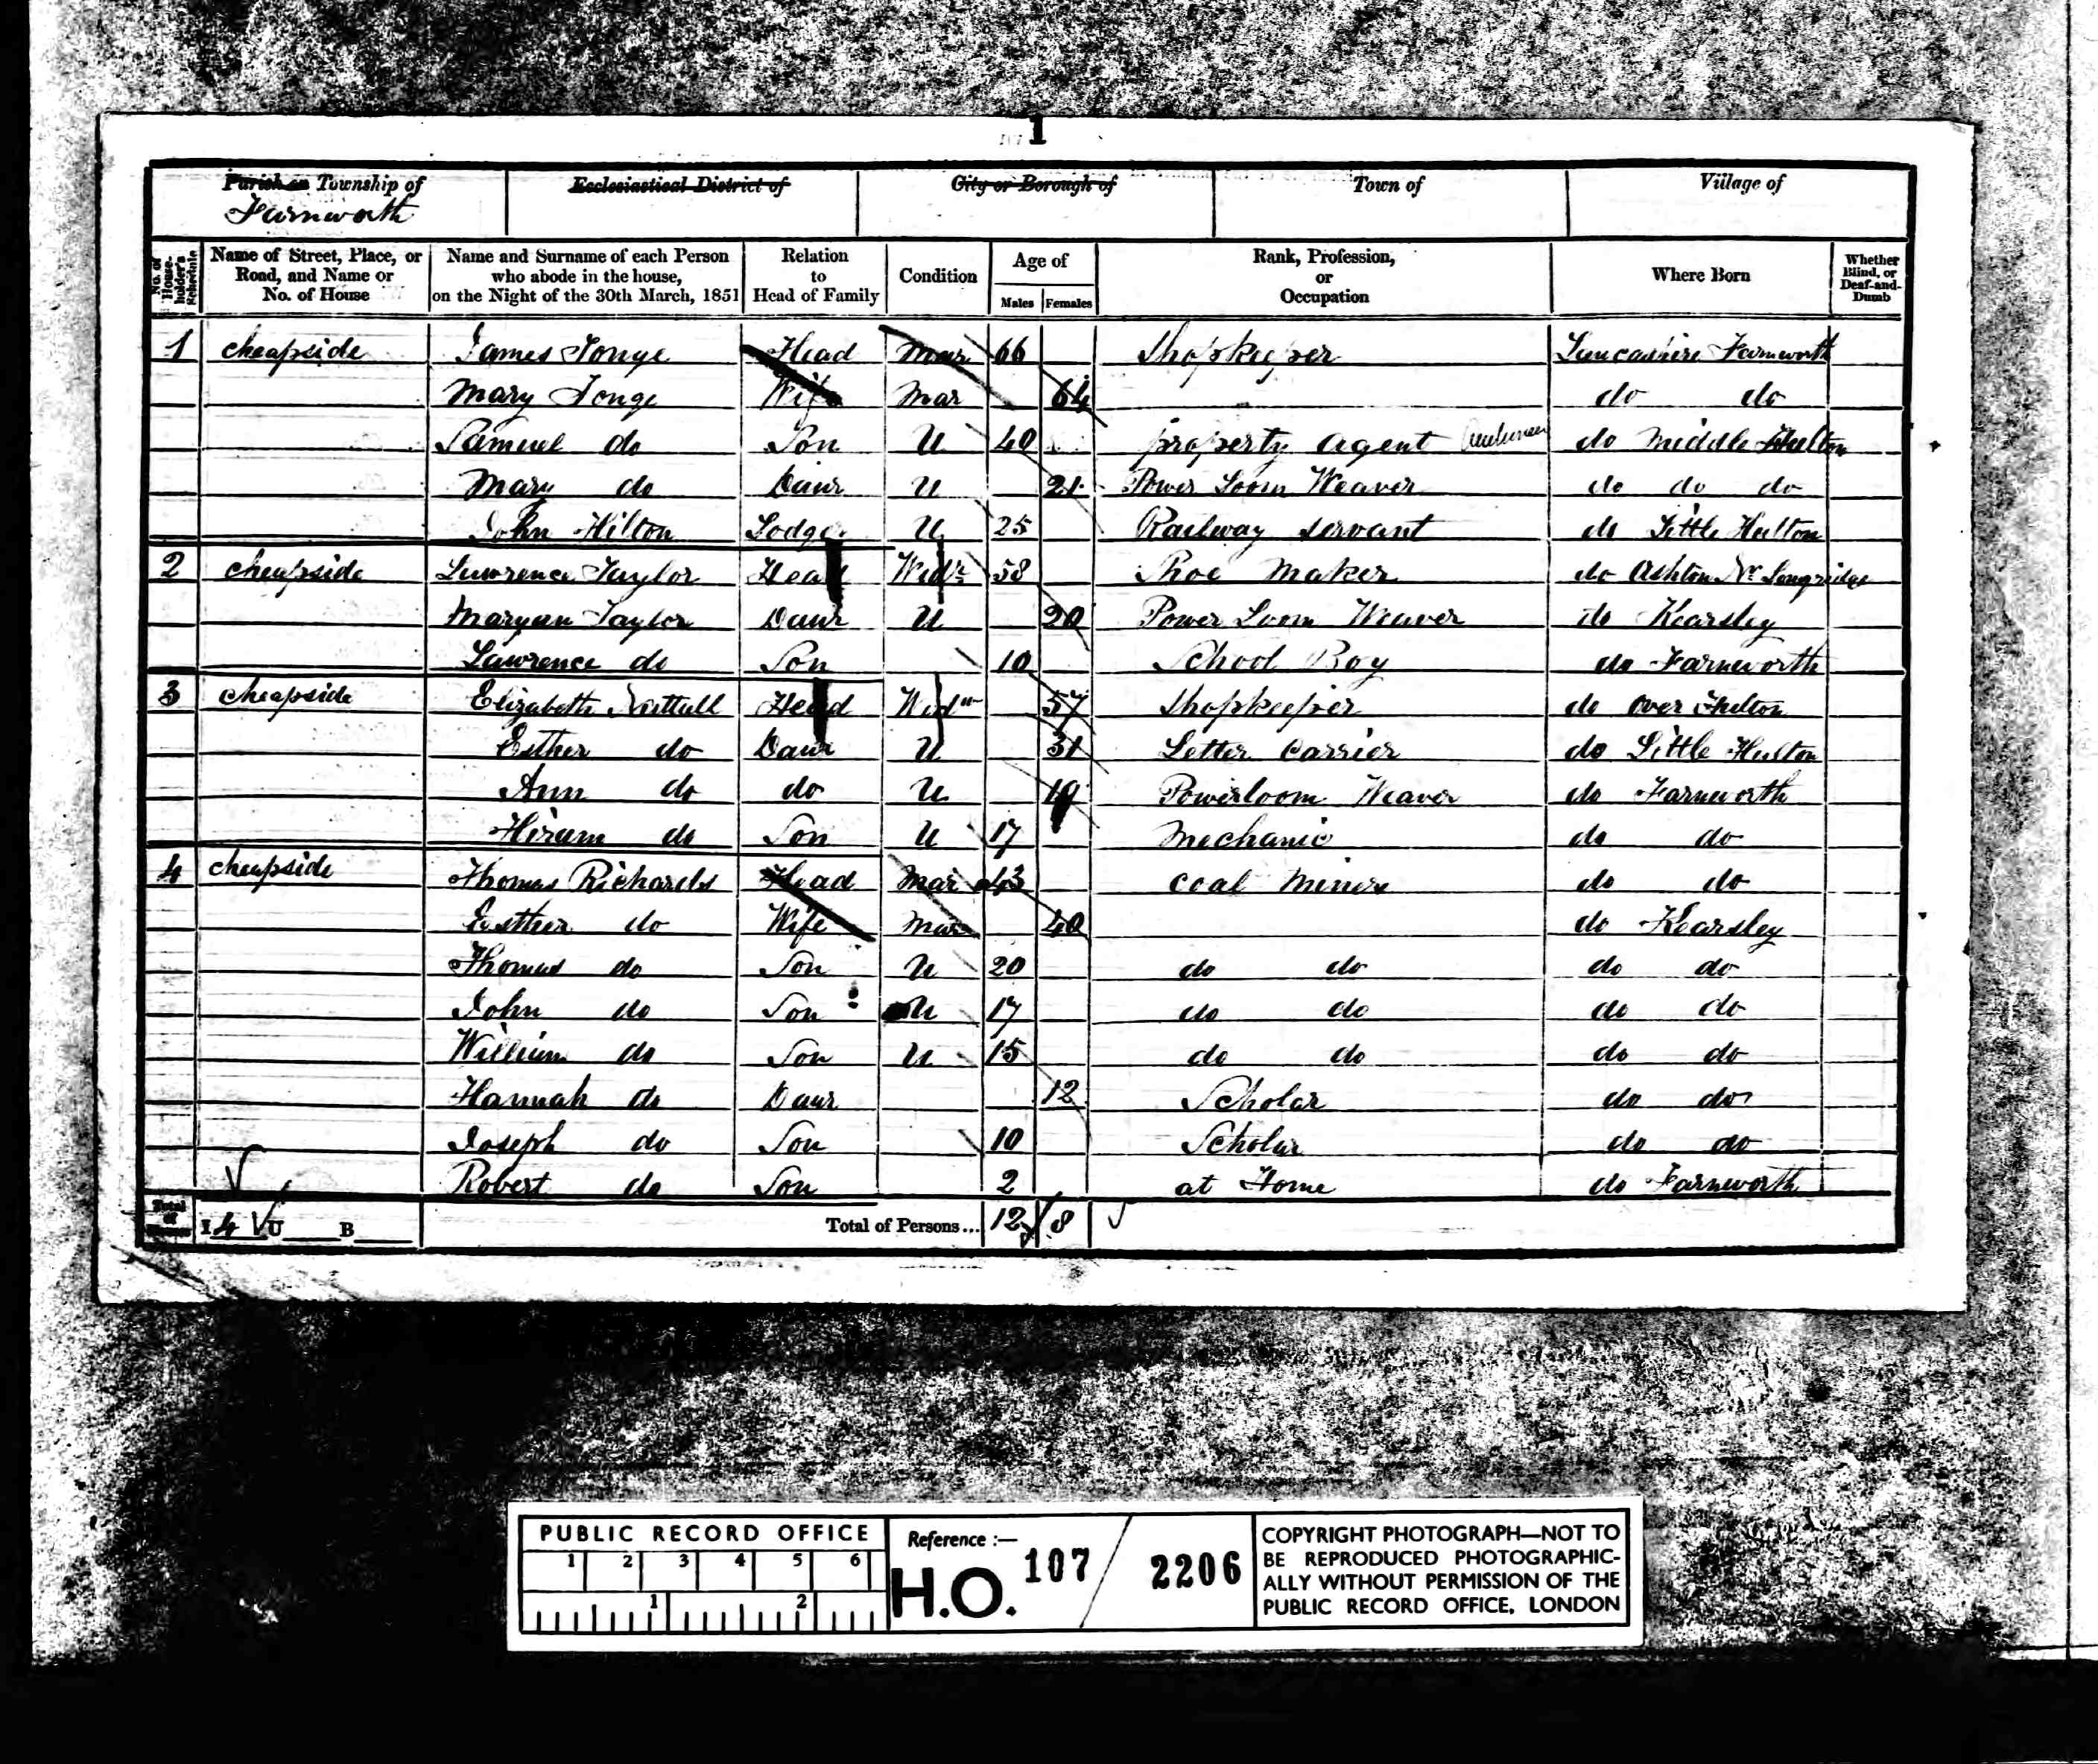 1
Parish or Township of
Farnworth
Ecclesiastical District of
City or Borough of
Town of
Village of
No. of House-holder's Schedule
Name of Street, Place, or Road, and Name or No. of House
Name and Surname of each Person who abode in the house, on the Night of the 30th March, 1851
Relation to Head of Family
Condition
Age of
Males Females
Rank, Profession, or Occupation
Where Born
Whether Blind, or Deaf-and-Dumb
1 Cheapside James Tonge Head Mar 66 Shopkeeper Lancashire Farnworth
Mary Tonge Wife Mar 64 do do
Samuel do Son U 40 property agent do Middle Hulton
Mary do Daur U 21 Power Loom Weaver do do do
John Hilton Lodger U 25 Railway Servant do Little Hulton
2 Cheapside Lawrence Taylor Head Widr 58 Shoe Maker do Ashton Nr Longridge
Maryan Taylor Daur U 20 Power Loom Weaver do Kearsley
Lawrence do Son 10 School Boy do Farnworth
3 Cheapside Elizabeth Nuttall Head Widw 57 Shopkeeper do Over Hulton
Esther do Daur U 31 Letter Carrier do Little Hulton
Ann do do U 19 Powerloom Weaver do Farnworth
Hiram do Son U 17 Mechanic do do
4 Cheapside Thomas Richards Head Mar 43 Coal Miner do do
Esther do Wife Mar 40 do Kearsley
Thomas do Son U 20 do do do do
John do Son U 17 do do do do
William do Son U 15 do do do do
Hannah do Daur 12 Scholar do do
Joseph do Son 10 Scholar do do
Robert do Son 2 at Home do Farnworth
Total of Houses I 4 U B Total of Persons... 12 8
PUBLIC RECORD OFFICE
1 2 3 4 5 6
1 2
Reference :—
H.O. 107 / 2206
COPYRIGHT PHOTOGRAPH—NOT TO
BE REPRODUCED PHOTOGRAPHIC-
ALLY WITHOUT PERMISSION OF THE
PUBLIC RECORD OFFICE, LONDON